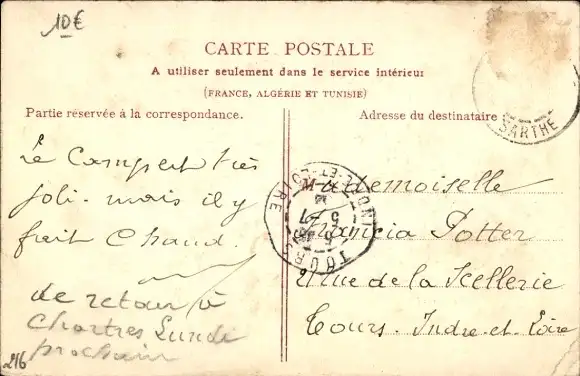 10€
CARTE POSTALE
A utiliser seulement dans le service intérieur
(FRANCE, ALGÉRIE ET TUNISIE)
Partie réservée à la correspondance.
Adresse du destinataire
SARTHE
Le Camp est très
joli. mais il y
fait chaud.
de retour à
Chartres Lundi
prochain
216
TOURS
INDRE-ET-LOIRE
Mademoiselle
Potter
rue de la Scellerie
Tours. Indre-et-Loire